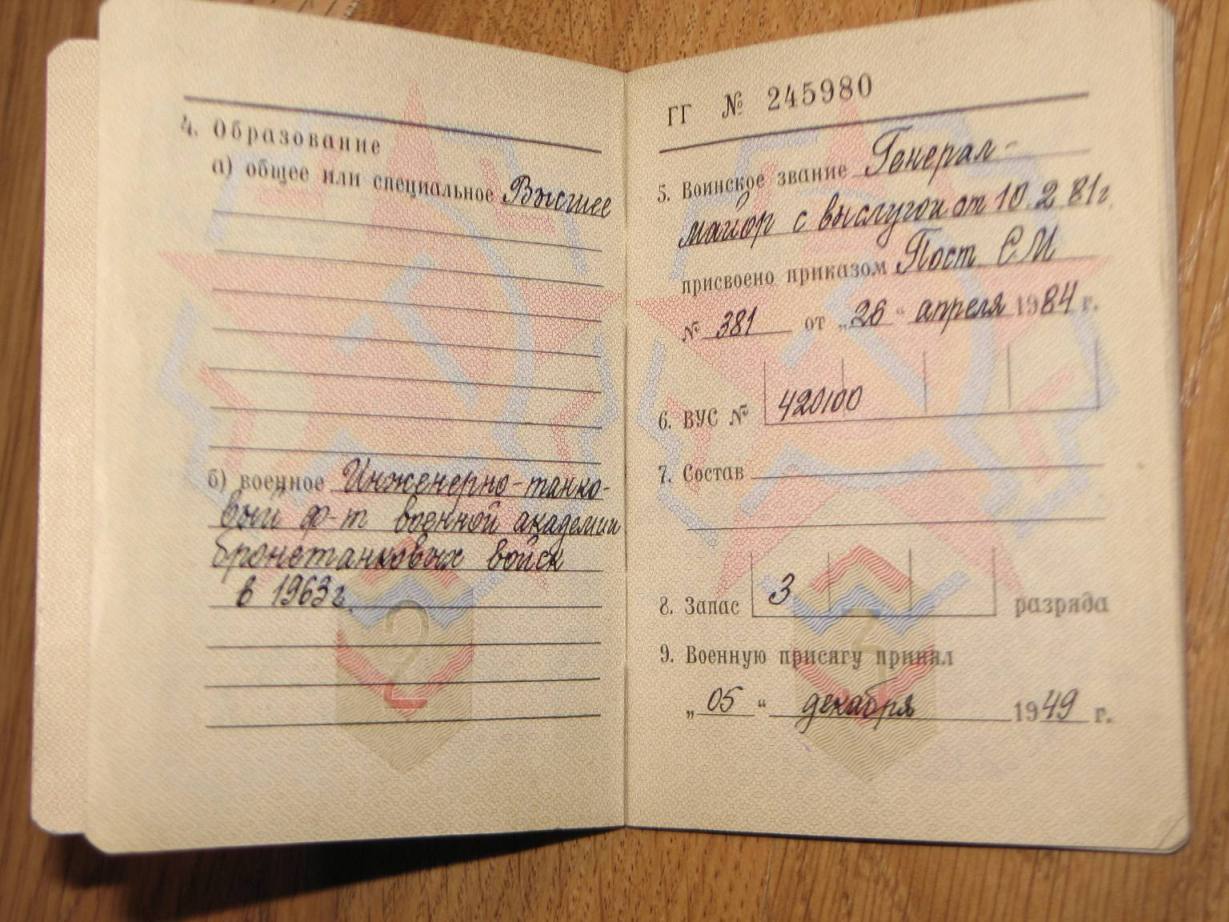 4. Образование
а) общее или специальное Высшее
б) военное Инженерно-танко-
вый ф-т военной академии
бронетанковых войск
в 1963г.
2
ГГ № 245980
5. Воинское звание Генерал-
майор с выслугой от 10.2.81г.
присвоено приказом Пост. СМ
№ 381 от „26“ апреля 1984 г.
6. ВУС № 420100
7. Состав
8. Запас 3 разряда
9. Военную присягу принял
„05“ декабря 1949 г.